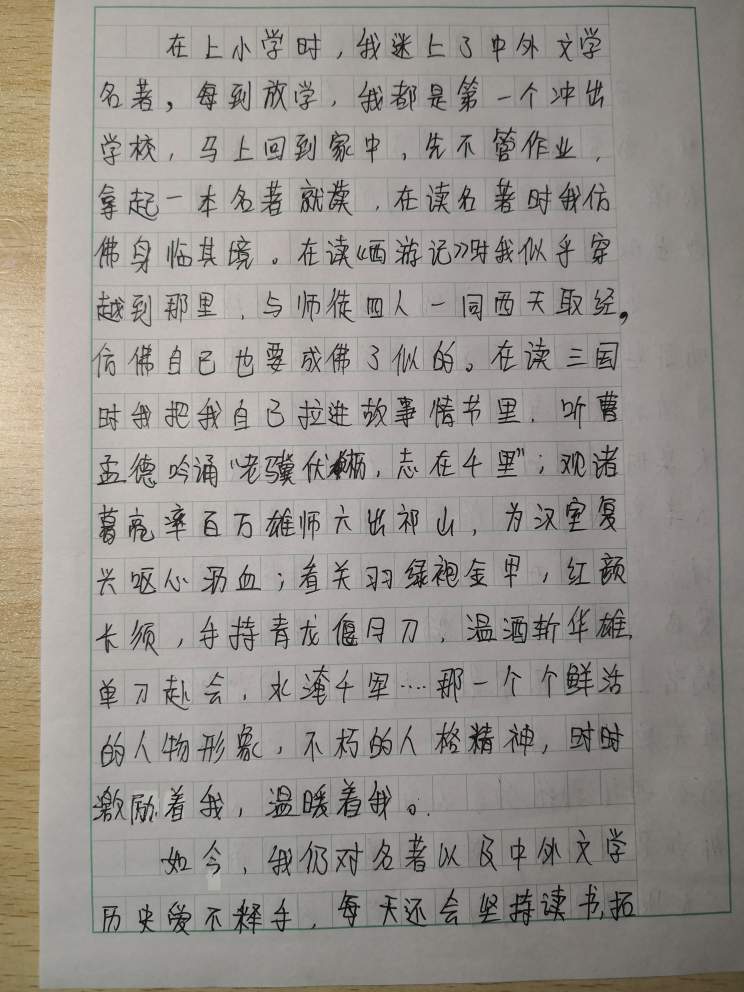 在上小学时，我迷上了中外文学
名著，每到放学，我都是第一个冲出
学校，马上回到家中，先不管作业，
拿起一本名著就读，在读名著时我仿
佛身临其境。在读《西游记》时我似乎穿
越到那里，与师徒四人一同西天取经，
仿佛自已也要成佛了似的。在读三国
时我把我自己拉进故事情节里，听曹
孟德吟诵“老骥伏枥，志在千里”；观诸
葛亮率百万雄师六出祁山，为汉室复
兴呕心沥血；看关羽绿袍金甲，红颜
长须，手持青龙偃月刀，温酒斩华雄，
单刀赴会，水淹千军……那一个个鲜活
的人物形象，不朽的人格精神，时时
激励着我，温暖着我。
如今，我仍对名著以及中外文学
历史爱不释手，每天还会坚持读书，拓